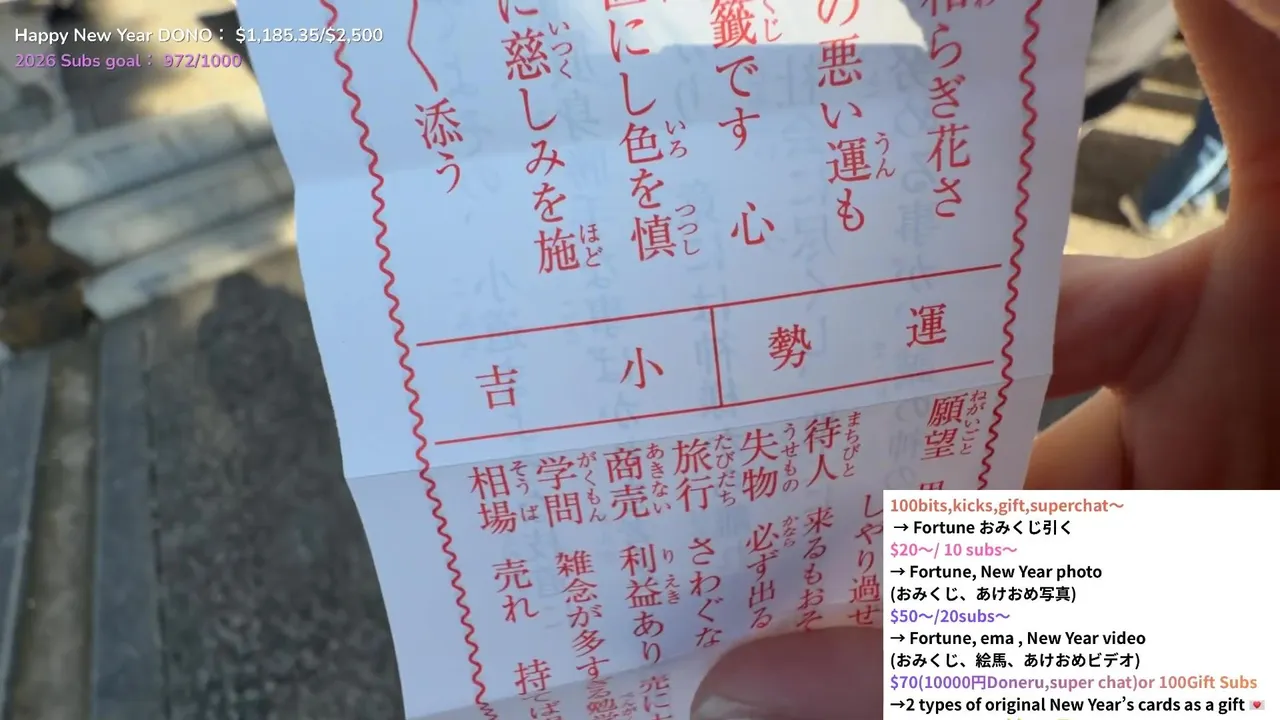 Happy New Year DONO： $1,185.35/$2,500
2026 Subs goal： 972/1000
和らぎ花さ
の悪い運も
籤です 心
にし色を慎
に慈しみを施
添う
運勢
小吉
願望
しゃり過せ
待人 来るもおそ
失物 必ず出る
旅行 さわぐな
商売 利益あり
学問 雑念が多す
相場 売れ 持
100bits,kicks,gift,superchat～
→ Fortune おみくじ引く
$20～/ 10 subs～
→ Fortune, New Year photo
(おみくじ、あけおめ写真)
$50～/20subs～
→ Fortune, ema , New Year video
(おみくじ、絵馬、あけおめビデオ)
$70(10000円Doneru,super chat)or 100Gift Subs
→2 types of original New Year's cards as a gift 💌